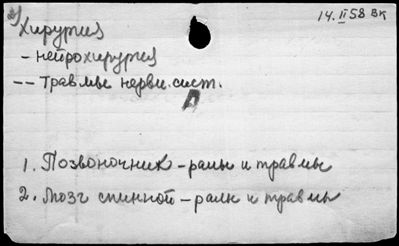 14.II 58 ВК
Хирургия
- нейрохирургия
-- травмы нервн. сист.
Д
1. Позвоночник - раны и травмы
2. Мозг спинной - раны и травмы